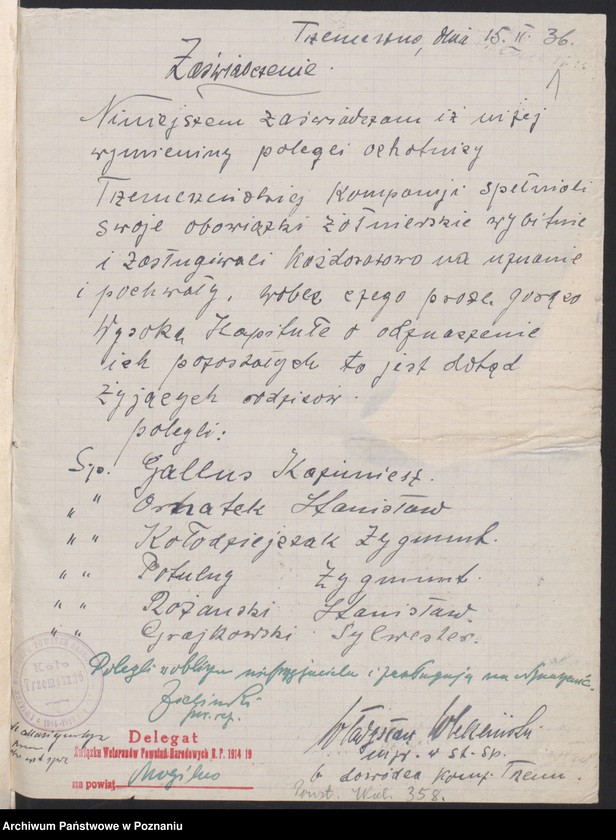 Trzemeszno, dnia 15. II. 36.
Zaświadczenie.
Niniejszem zaświadczam iż niżej
wymieniny polegli ochotnicy
Trzemeszeńskiej Kompanji spełniali
swoje obowiązki żołnierskie wybitnie
i zasługiwali każdorazowo na uznanie
i pochwały, wobec czego proszę gorąco
Wysoką Kapitułę o odznaczenie
ich pozostałych to jest dotąd
żyjących rodziców.
polegli:
Śp. Gallus Kazimierz.
" " Ornatek Stanisław
" " Kołodziejczak Zygmunt.
" " Potulny Zygmunt.
" " Różański Stanisław.
" " Grajkowski Sylwester.
Polegli w obliczu nieprzyjaciela i zasługują na
Koło
Trzemeszno
Delegat
Związku Weteranów Powstań Narodowych R. P. 1914/19
na powiat Mogilno
Władysław
mjr. w st. sp.
b. dowódca Komp. Trzem.
Powst. Wlkp. 358.
Archiwum Państwowe w Poznaniu